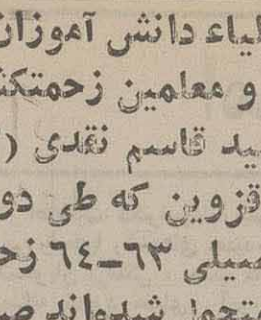 لیاء دانش آموزان
و معلمین زحمتکش
ید قاسم نقدی (
قزوین که طی دو
صیلی ۶۳-۶۴ زح
متحمل شده‌اند صم